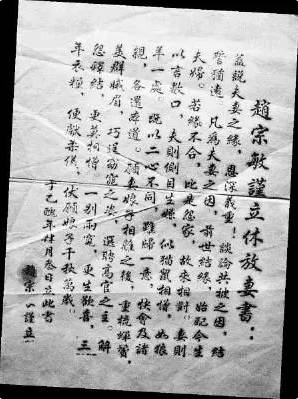 趙宗敏謹立休放妻書：
蓋說夫妻之緣，恩深義重！談論共被之因，結
誓幽遠。凡為夫妻之因，前世結緣，始配今生
夫婦。若緣不合，比是怨家，故來相對。妻則
以言數口，夫則側目生嫌。似貓鼠相憎，如狼
羊一處。既以二心不同，難歸一意，快會及諸
親，各還本道。願妻娘子相離之後，重梳蟬鬢，
美群娥眉，巧逞窈窕之姿，選聘高官之主。解
怨釋結，更莫相憎。一別兩寬，更生歡喜，三
年衣糧，便獻柔儀。伏願娘子千秋萬歲！
于己醜年月叁日立此書
趙宗謹立